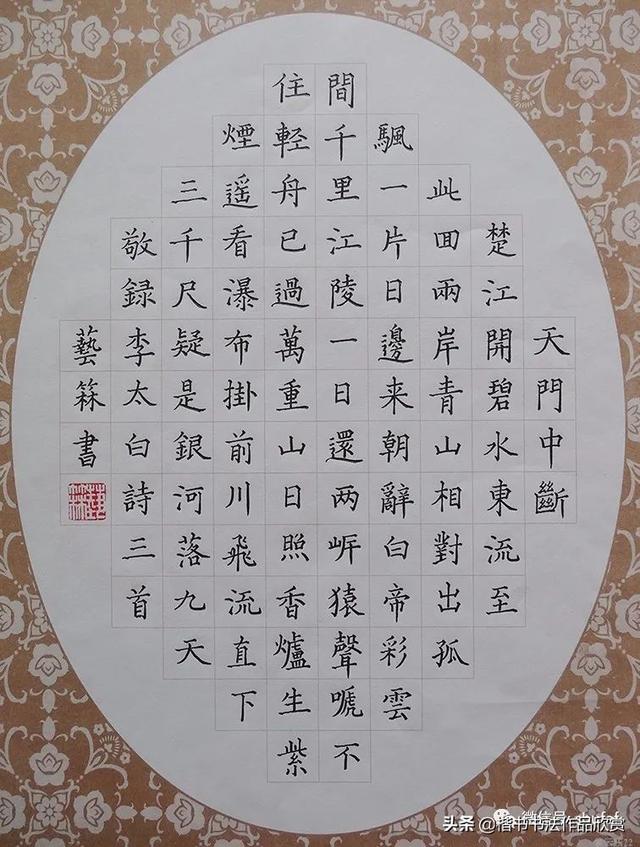 天門中斷
楚江開碧水東流至
此囬兩岸青山相對出孤
颿一片日邊来朝辭白帝彩雲
間千里江陵一日還两岍猿聲嗁不
住軽舟已過萬重山日照香爐生紫
煙遥看瀑布掛前川飛流直下
三千尺疑是銀河落九天
敬録李太白詩三首
藝箖書
微信号
头条 @楷书书法作品欣赏